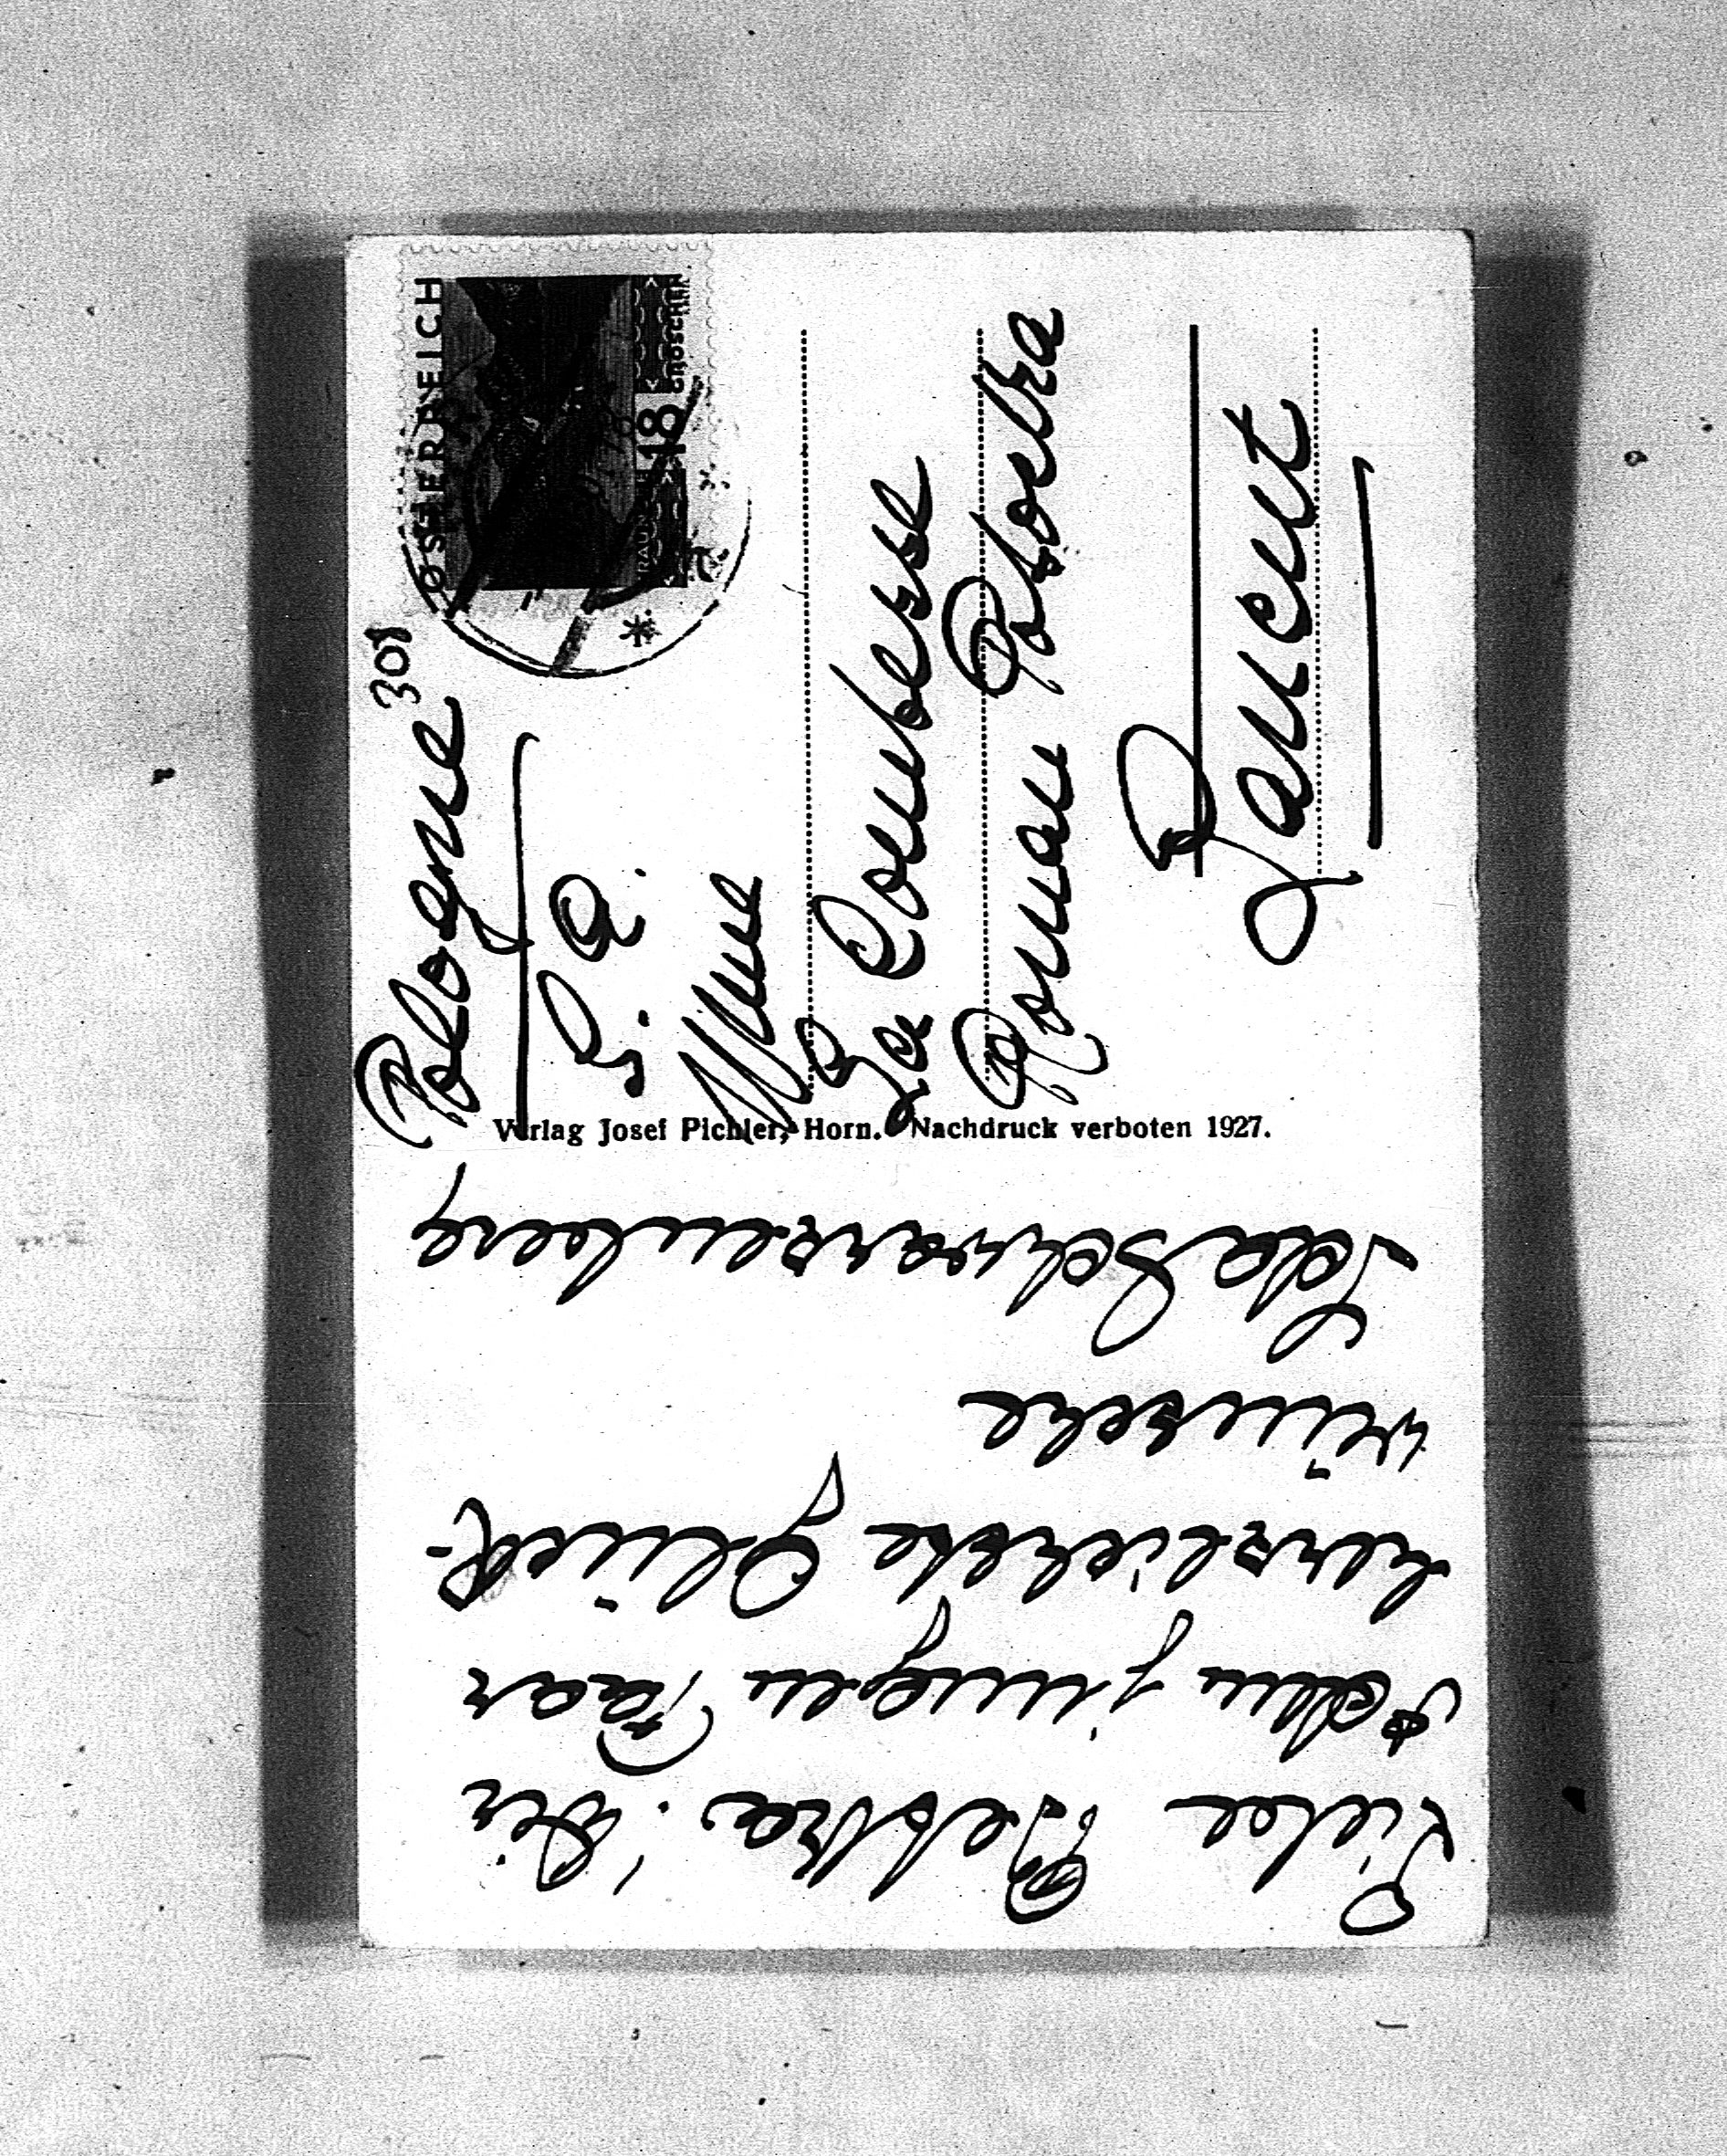 ÖSTERREICH
18
GROSCHEN
Pologne 308
S. A.
Mme
La Comtesse
Roman Potocka
Łancut
Verlag Josef Pichler, Horn. Nachdruck verboten 1927.
Liebe Betka! Dir
& dem jungen Paar
herzlichste Glück-
wünsche
Ida Schwarzenberg